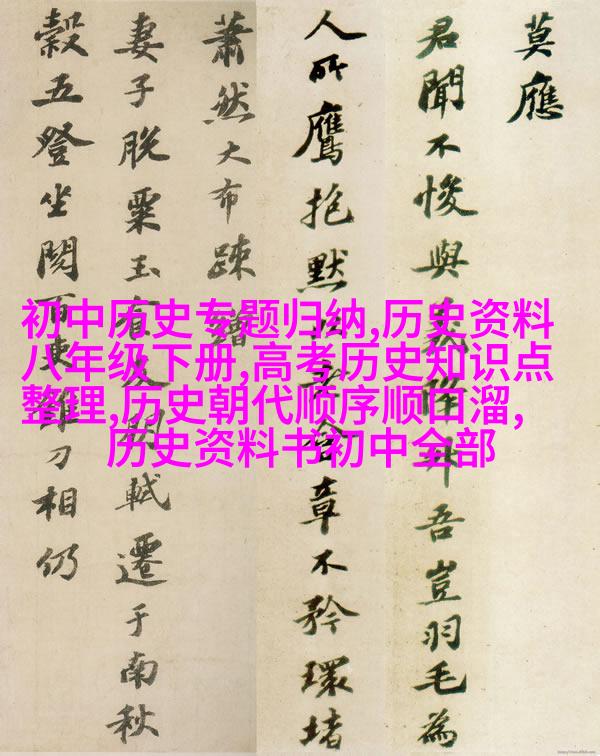 莫應
君聞不悛與義降升吾豈羽毛為
人所鷹抱默以章不矜環堵
蕭然大布疎繒
妻子脫粟玉食及門軾遷于南秋
穀五登坐閱百吏錐刀相仍
初中历史专题归纳,历史资料
八年级下册,高考历史知识点
整理,历史朝代顺序顺口溜,
历史资料书初中全部